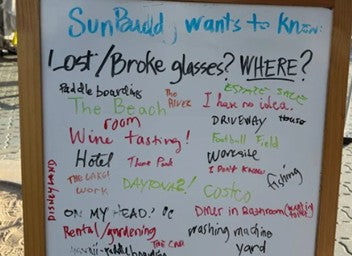 SunBudd, wants to know:
Lost/Broke glasses? WHERE?
Paddle boarding
The RIVER
ESTATE SALE
The Beach
I have no idea.
room
DRIVEWAY
HOUSE
Wine tasting!
Football Field
Hotel
Theme Park
Worcville
I Don't Know
Fishing
THE LAKE!
WORK
DAYTONA2!
Costco
DISNEYLAND
ON MY HEAD!
Diner in Bathroom
Rental/gardening
washing machine
THE CAR
yard
boarding